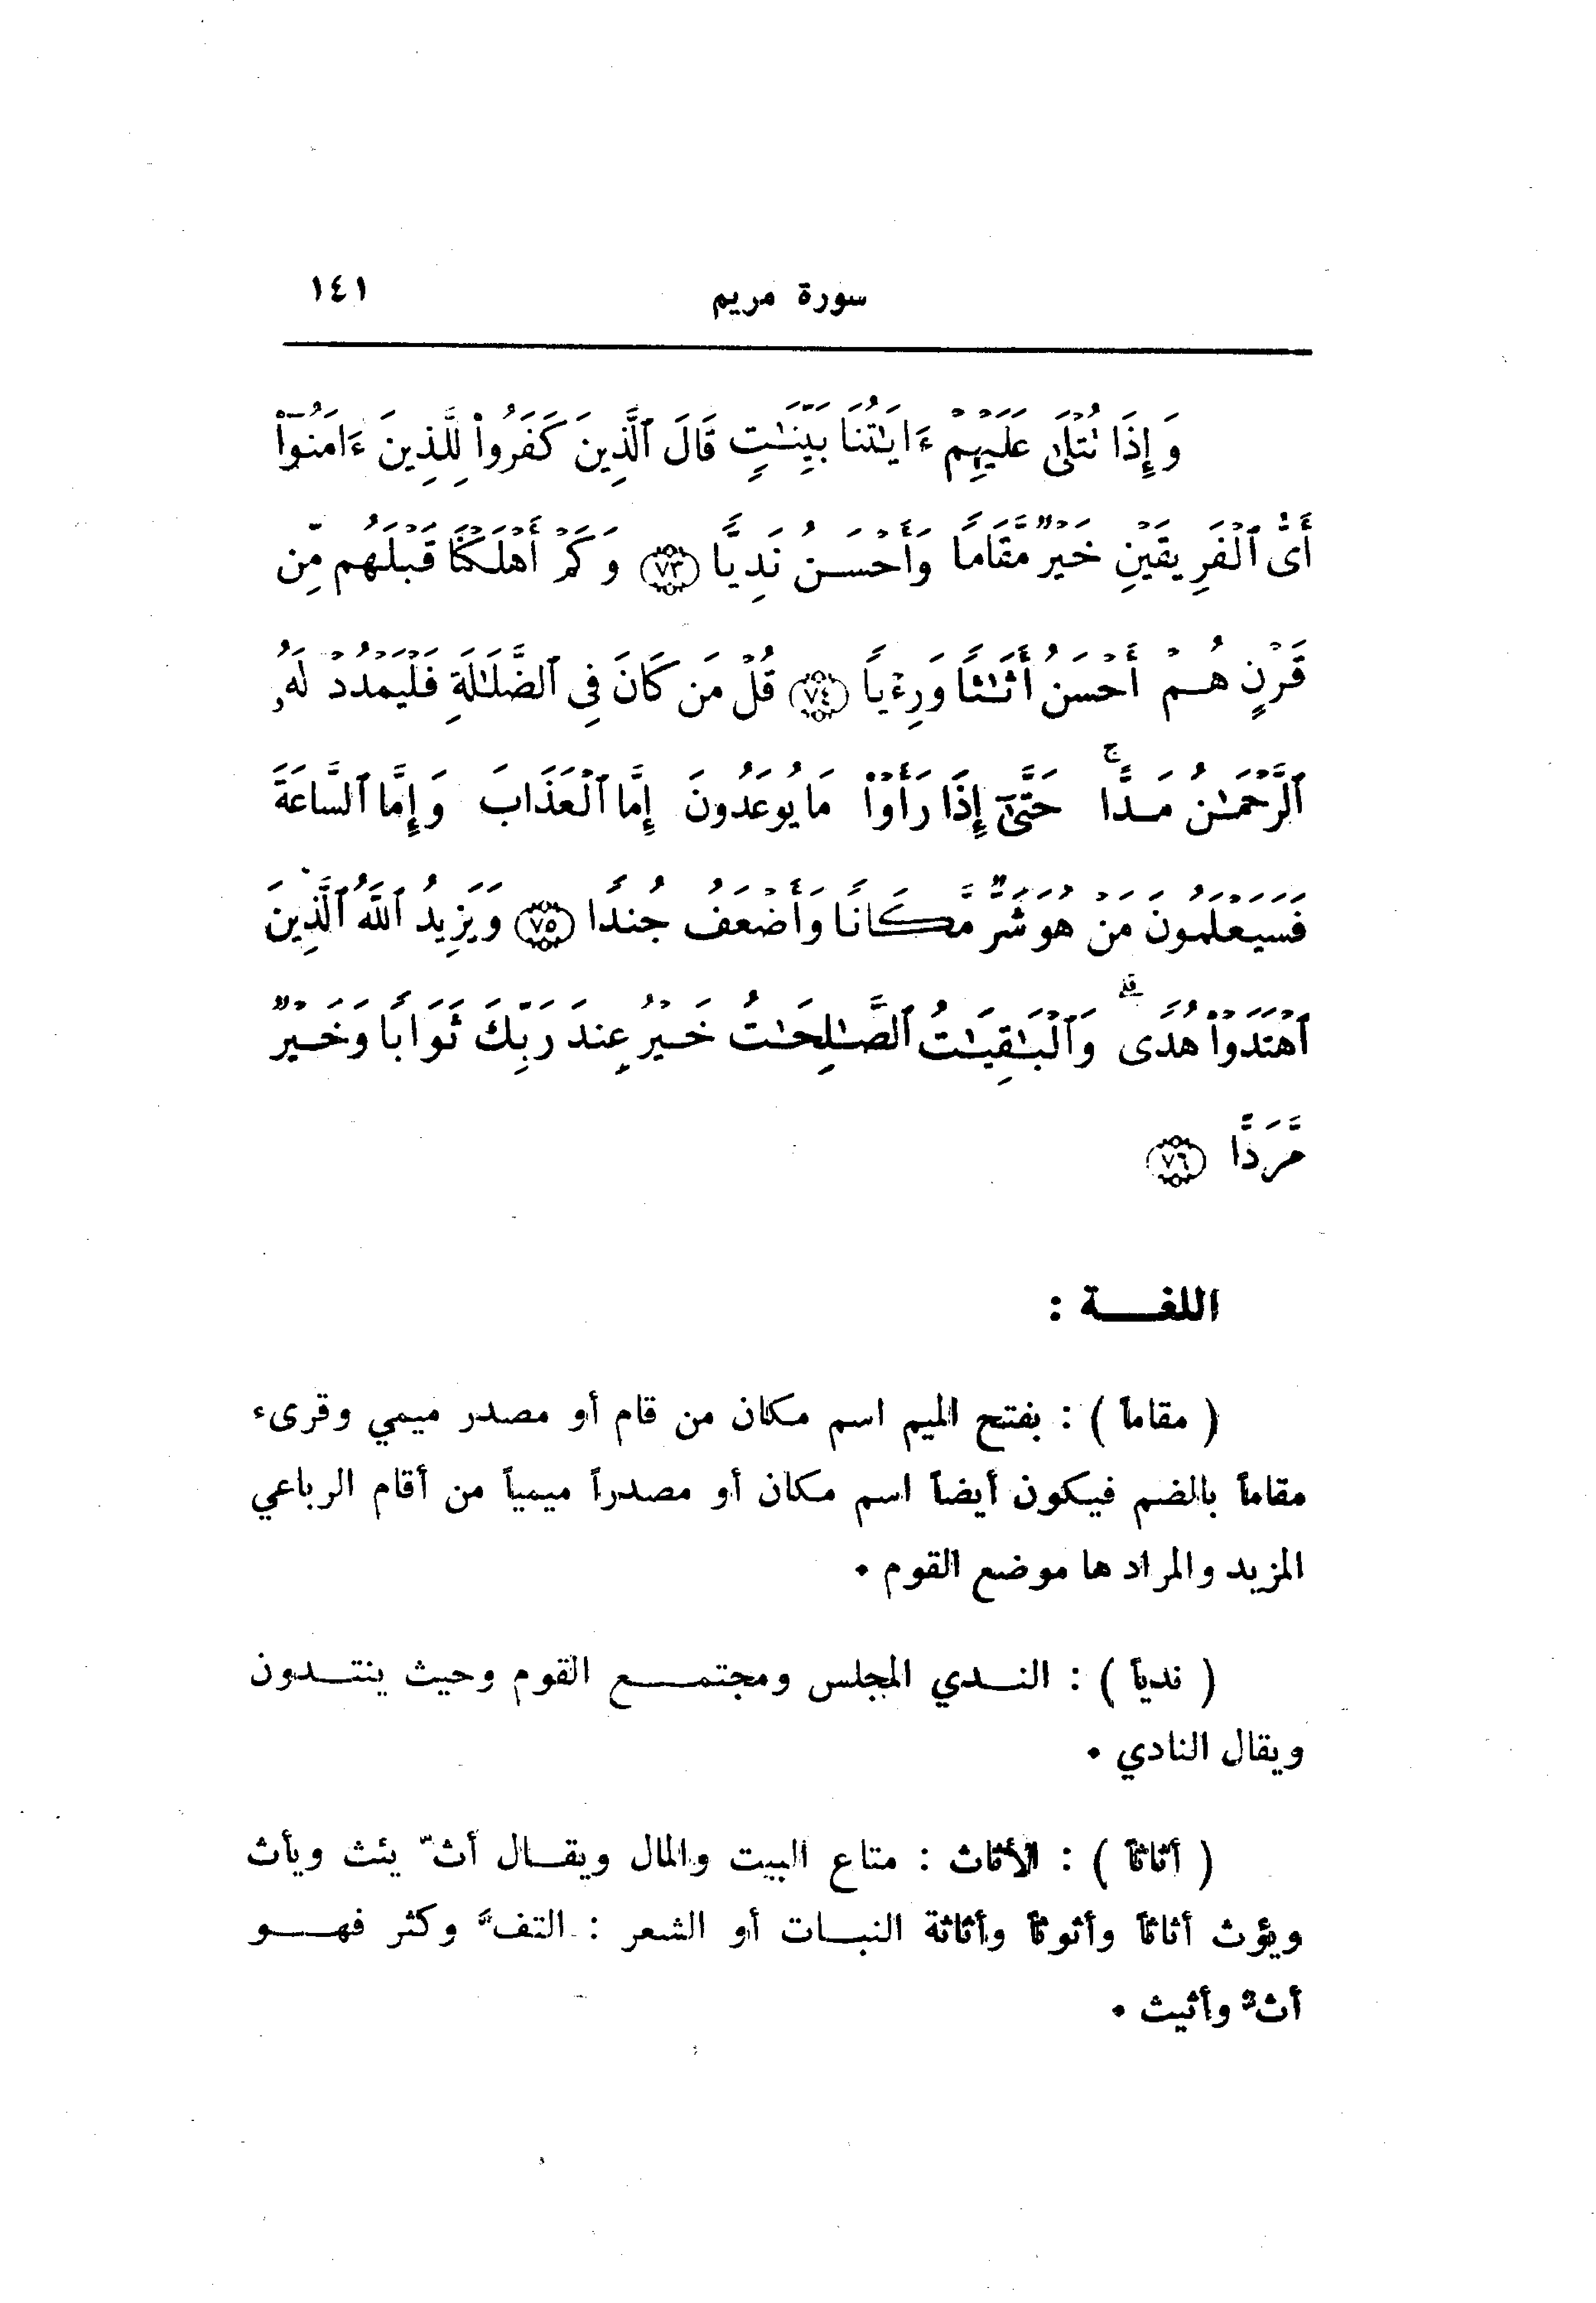 سورة مريم ١٤١
وَإِذَا تُتْلَىٰ عَلَيْهِمْ ءَايَٰتُنَا بَيِّنَٰتٍ قَالَ ٱلَّذِينَ كَفَرُوا۟ لِلَّذِينَ ءَامَنُوٓا۟
أَىُّ ٱلْفَرِيقَيْنِ خَيْرٌ مَّقَامًا وَأَحْسَنُ نَدِيًّا ﴿٧٣﴾ وَكَمْ أَهْلَكْنَا قَبْلَهُم مِّن
قَرْنٍ هُمْ أَحْسَنُ أَثَٰثًا وَرِءْيًا ﴿٧٤﴾ قُلْ مَن كَانَ فِى ٱلضَّلَٰلَةِ فَلْيَمْدُدْ لَهُ
ٱلرَّحْمَٰنُ مَدًّا ۚ حَتَّىٰٓ إِذَا رَأَوْا۟ مَا يُوعَدُونَ إِمَّا ٱلْعَذَابَ وَإِمَّا ٱلسَّاعَةَ
فَسَيَعْلَمُونَ مَنْ هُوَ شَرٌّ مَّكَانًا وَأَضْعَفُ جُندًا ﴿٧٥﴾ وَيَزِيدُ ٱللَّهُ ٱلَّذِينَ
ٱهْتَدَوْا۟ هُدًى ۗ وَٱلْبَٰقِيَٰتُ ٱلصَّٰلِحَٰتُ خَيْرٌ عِندَ رَبِّكَ ثَوَابًا وَخَيْرٌ
مَّرَدًّا ﴿٧٦﴾
اللغـــة :
( مقاماً ) : بفتح الميم اسم مكان من قام أو مصدر ميمي وقرىء
مقاماً بالضم فيكون أيضاً اسم مكان أو مصدراً ميمياً من أقام الرباعي
المزيد والمراد ها موضع القوم .
( ندياً ) : النـدي المجلس ومجتمـــع القوم وحيث ينتـدون
ويقال النادي .
( أثاثاً ) : الأثاث : متاع البيت والمال ويقـال أثّ يئث ويأث
ويؤث أثاثاً وأثوثاً وأثاثة النبـات أو الشعر : التفّ وكثر فهـــو
أثٌّ وأثيث .